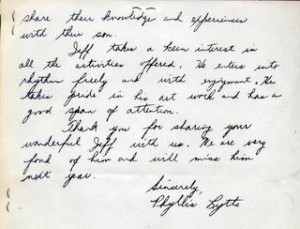 share their knowledge and experiences
with their son.
Jeff takes a keen interest in
all the activities offered. He enters into
rhythm freely and with enjoyment. He
takes pride in his art work and has a
good span of attention.
Thank you for sharing your
wonderful Jeff with us. We are very
fond of him and will miss him
next year.
Sincerely,
Phyllis